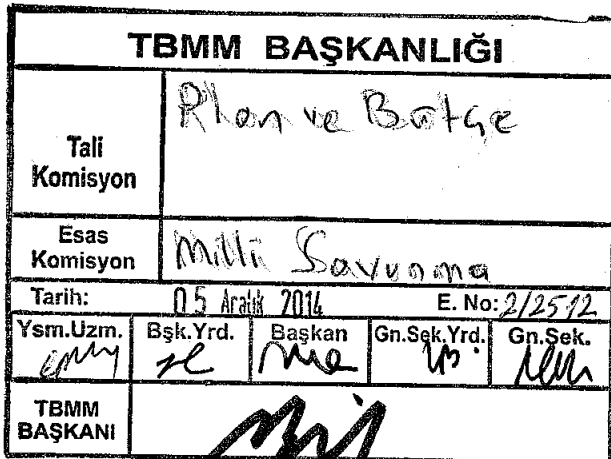 TBMM BAŞKANLIĞI
Tali Komisyon
Plan ve Bütçe
Esas Komisyon
Milli Savunma
Tarih: 05 Aralık 2014 E. No: 2/2512
Ysm.Uzm. Bşk.Yrd. Başkan Gn.Sek.Yrd. Gn.Sek.
TBMM BAŞKANI